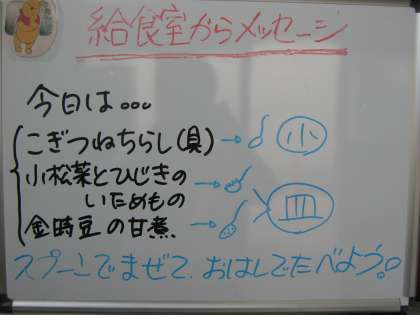 給食室からメッセージ
今日は...
こぎつねちらし(具)→ 小
小松菜とひじきの
いためもの →
金時豆の甘煮. → 皿
スプーンでまぜて、おはしでたべよう。